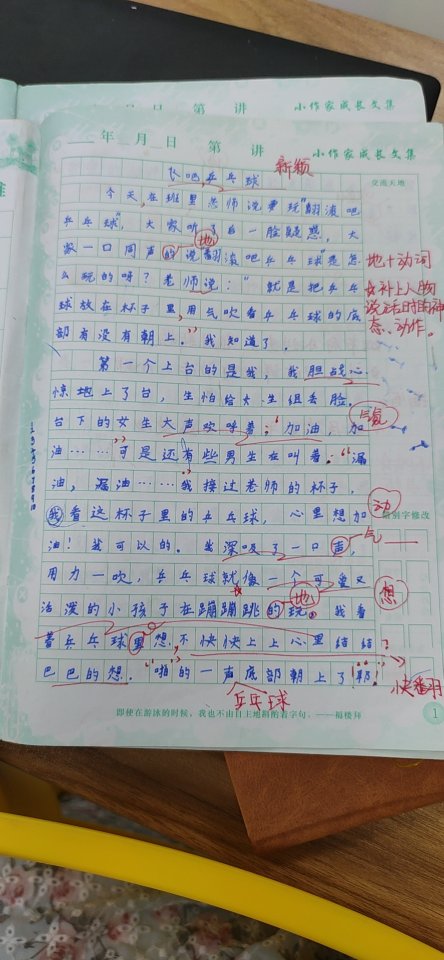 月 日 第 讲 小作家成长文集
年 月 日 第 讲 小作家成长文集
飞吧乒乓球 新颖
交流天地
今天,在班里老师说要玩"翻滚吧
乒乓球",大家听了后一脸疑惑,大
家一口同声的说翻滚吧乒乓球是怎
地
地+动词
么玩的呀?老师说:"就是把乒乓
球放在杯子里,用气吹着乒乓球的底
部有没有朝上。"我知道了。
补上人物
说话时的神
态、动作。
第一个上台的是我,我胆战心
惊地上了台,生怕给大生组丢脸。
台下的女生大声欢呼着:"加油,加
油……"可是还有些男生在叫着:"漏
油,漏油……"我接过老师的杯子,
我看这杯子里的乒乓球,心里想加
油!我可以的。我深吸了一口声,
气
用力一吹,乒乓球就像一个可爱又
地
想
活泼的小孩子在蹦蹦跳的玩。我看
着乒乓球里想,不快快上上心里结结
巴巴的想。"啪的一声底部朝上了!"耶!
乒乓球
快翻羽
错别字修改
动
即使在游泳的时候,我也不由自主地斟酌着字句。——福楼拜
1